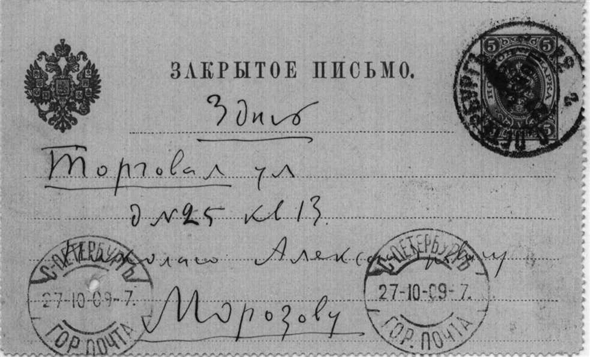 ЗАКРЫТОЕ ПИСЬМО.
5 5
Здѣсь
Торговая ул
д № 25 кв 13.
Николаю Александровичу
Морозову
С-ПЕТЕРБУРГЪ
27-10-09-7.
ГОР. ПОЧТА
С-ПЕТЕРБУРГЪ
27-10-09-7.
ГОР. ПОЧТА